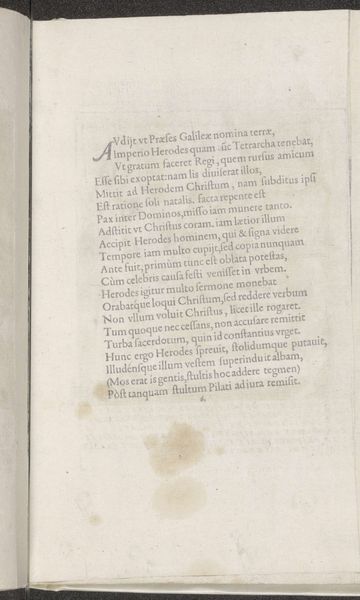 AVdijt vt Præses Galileæ nomina terræ,
Imperio Herodes quam sic Tetrarcha tenebat,
Vt gratum faceret Regi, quem rursus amicum
Esse sibi exoptat: nam lis diuiserat illos,
Mittit ad Herodem Christum, nam subditus ipsi
Est ratione soli natalis. facta repente est
Pax inter Dominos, misso iam munere tanto.
Adstitit vt Christus coram, iam lætior illum
Accipit Herodes hominem, qui & signa videre
Tempore iam multo cupijt, sed copia nunquam
Ante fuit, primùm tunc est oblata potestas,
Cùm celebris causa festi venisset in vrbem.
Herodes igitur multo sermone monebat
Orabatque loqui Christum, sed reddere verbum
Non vllum voluit Christus, licet ille rogaret.
Tum quoque nec cessans, non accusare remittit
Turba sacerdotum, quin id constantius vrget.
Hunc ergo Herodes spreuit, stolidumque putauit,
Illudénsque illum vestem superinduit albam,
(Mos erat is gentis, stultis hoc addere tegmen)
Pòst tanquam stultum Pilati ad iura remisit.